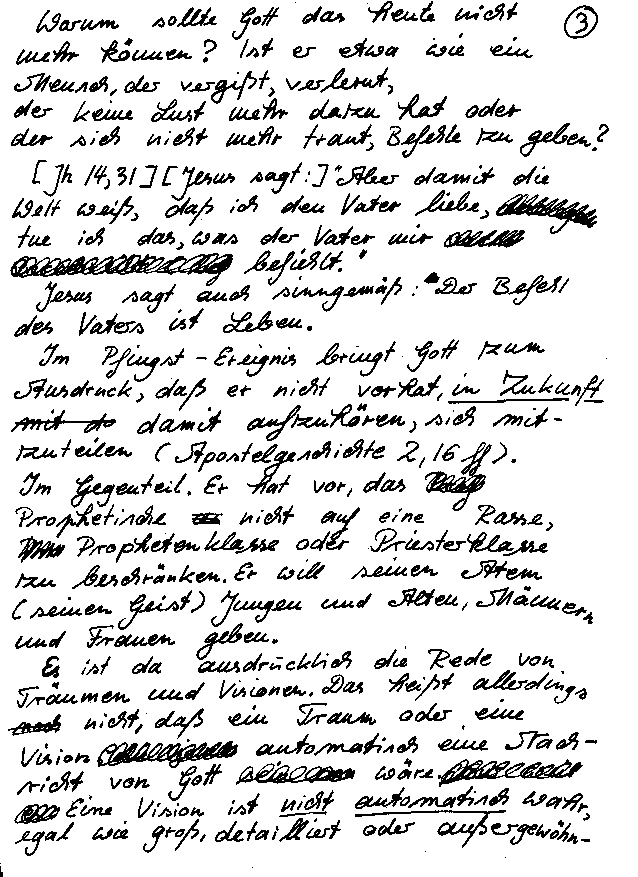 Warum sollte Gott das heute nicht
③
mehr können? Ist er etwa wie ein
Mensch, der vergißt, verlernt,
der keine Lust mehr dazu hat oder
der sich nicht mehr traut, Befehle zu geben?
[Jh 14,31] [Jesus sagt:] "Aber damit die
Welt weiß, daß ich den Vater liebe,
tue ich das, was der Vater mir
befiehlt."
Jesus sagt auch sinngemäß: "Der Befehl
des Vaters ist Leben.
Im Pfingst-Ereignis bringt Gott zum
Ausdruck, daß er nicht vorhat, in Zukunft
mit do damit aufzuhören, sich mit-
zuteilen (Apostelgeschichte 2,16 ff).
Im Gegenteil. Er hat vor, das
Prophetische nicht auf eine Rasse,
Prophetenklasse oder Priesterklasse
zu beschränken. Er will seinen Atem
(seinen Geist) Jungen und Alten, Männern
und Frauen geben.
Es ist da ausdrücklich die Rede von
Träumen und Visionen. Das heißt allerdings
noch nicht, daß ein Traum oder eine
Vision automatisch eine Nach-
richt von Gott wäre.
Eine Vision ist nicht automatisch wahr,
egal wie groß, detailliert oder außergewöhn-